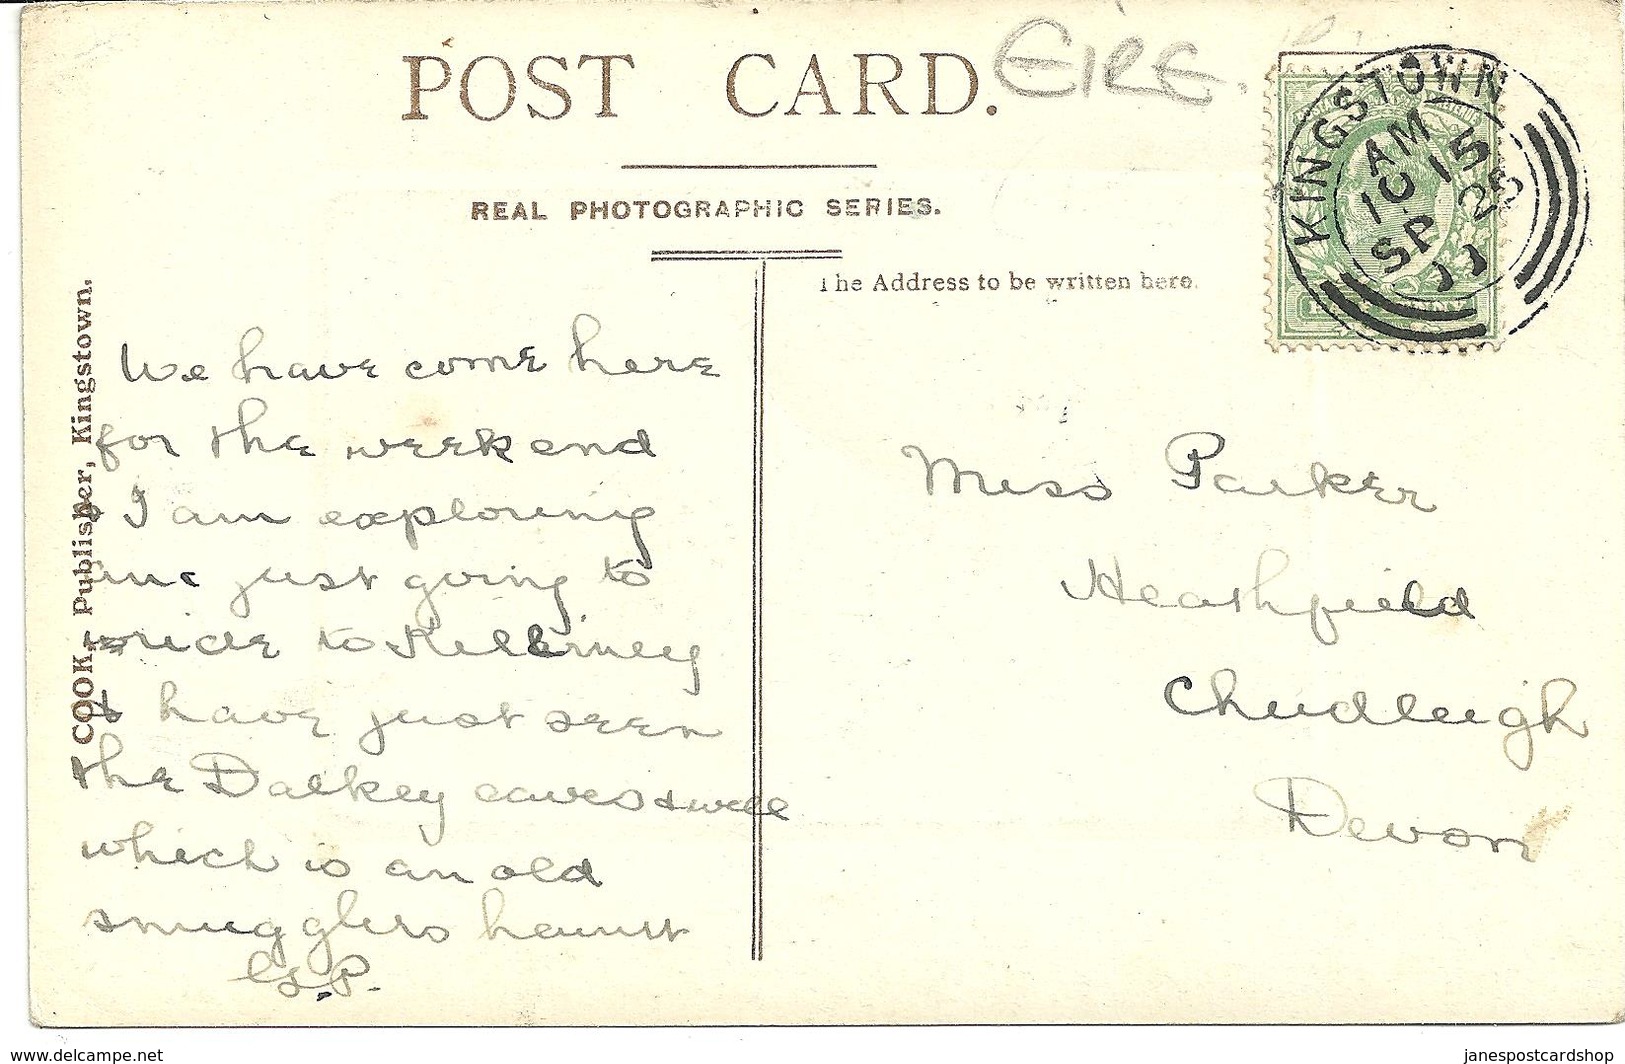 POST CARD.
EIRE.
REAL PHOTOGRAPHIC SERIES.
The Address to be written here.
KINGSTOWN
AM
10 15
SP 25
11
COOK, Publisher, Kingstown.
We have come here
for the weekend
& I am exploring
and just going to
ride to Killiney
& have just seen
the Dalkey caves & well
which is an old
smugglers haunt
G.P.
Miss Parker
Heathfield
Chudleigh
Devon
www.delcampe.net
janespostcardshop